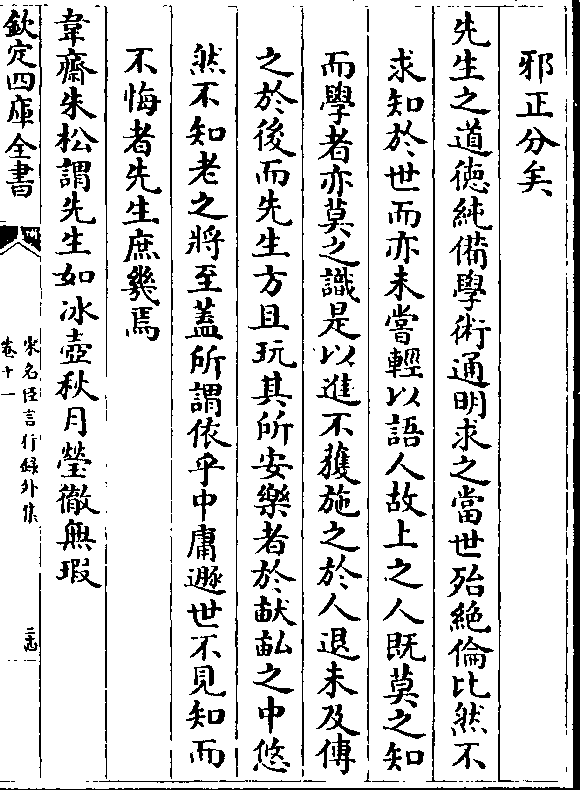 邪正分矣
先生之道徳純備學術通明求之當世殆絶倫比然不
求知於世而亦未嘗輕以語人故上之人既莫之知
而學者亦莫之識是以進不獲施之於人退未及傳
之於後而先生方且玩其所安樂者於畎畝之中悠
然不知老之將至蓋所謂依乎中庸遯世不見知而
不悔者先生庶幾焉
韋齋朱松謂先生如冰壺秋月瑩徹無瑕
欽定四庫全書
宋名臣言行録外集
卷十一